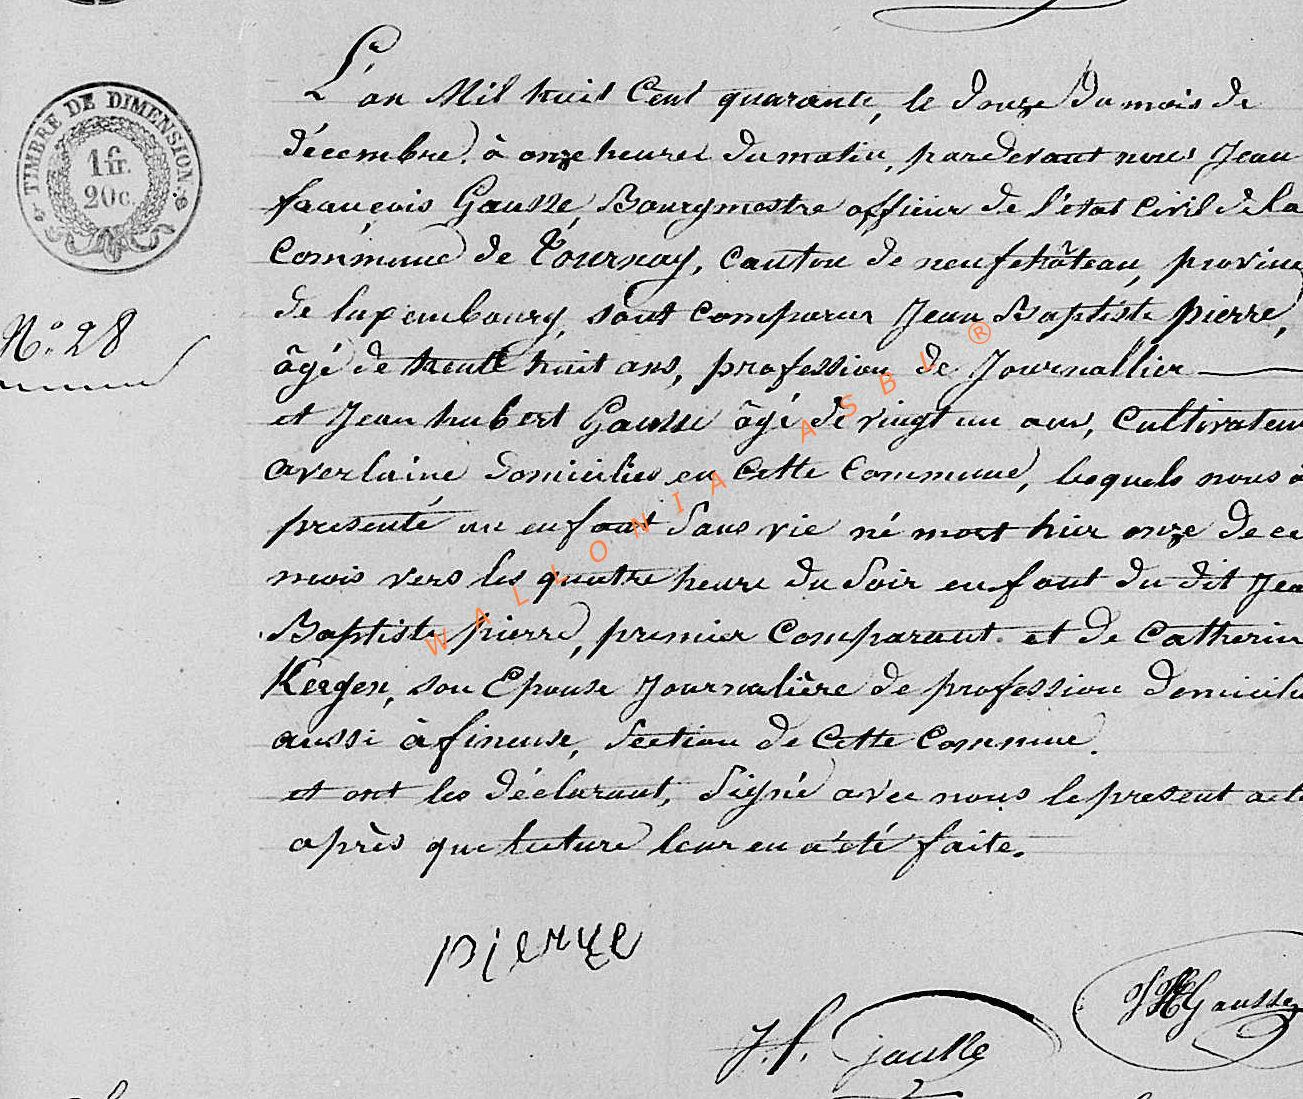 TIMBRE DE DIMENSION.
1 fr.
20c.
N.° 28
L'an Mil huit Cent quarante, le douze Du mois de
décembre, à onze heures du matin, pardevant nous Jean
françois Gausse, Bourgmestre officier de l'état Civil de la
Commune de Tournay, canton de neufchâteau, provinc
de luxembourg, sont comparus Jean Baptiste pierre,
âgé de trente huit ans, profession de Journallier
et Jean hubert Gausse âgé de vingt un ans, Cultivateur
averlaine domiciliés en Cette Commune, lesquels nous o
presenté un enfant Sans vie né mort hier onze de ce
mois vers les quatre heure du Soir enfant du dit Jea
Baptiste pierre, premier Comparant et de Catherin
Kergen, son Epouse Journalière de profession domicili
aussi à fineuse, Section de Cette Commune.
et ont les déclarant, Signé avec nous le present acte
après que lecture leur en a été faite.
pierre
J. f. Gausse
JH Gausse
WALLONIA ASBL ®